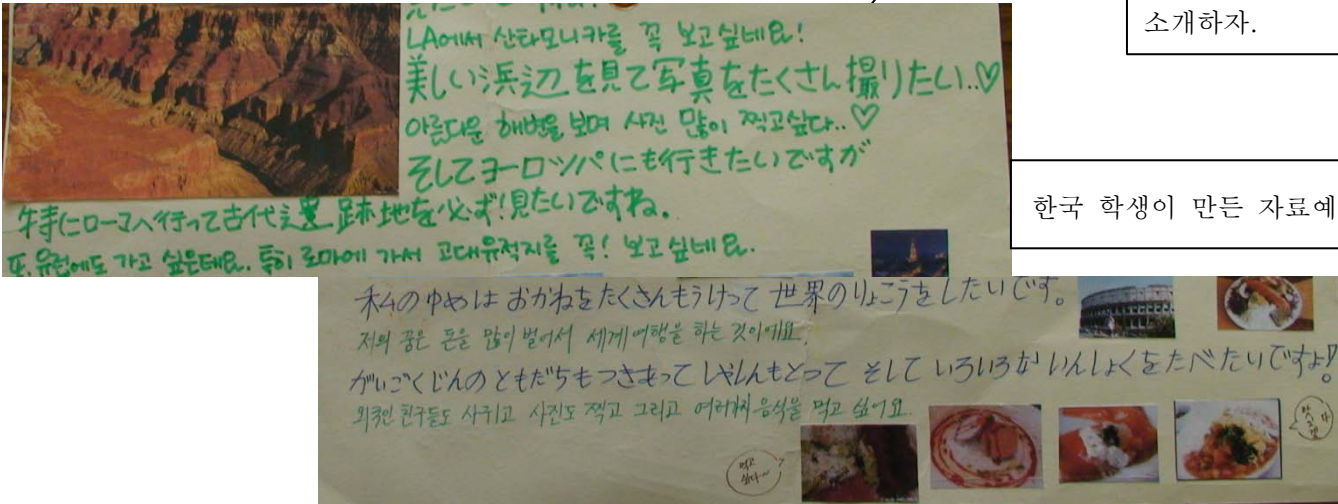 소개하자.
LA에서 산타모니카를 꼭 보고싶네요!
美しい浜辺を見て写真をたくさん撮りたい..♡
아름다운 해변을 보며 사진 많이 찍고싶다..♡
そしてヨーロッパにも行きたいですが
特にローマへ行って古代 跡地を必ず!見たいですね。
또, 유럽에도 가고 싶은데요. 특히 로마에 가서 고대유적지를 꼭! 보고싶네요.
한국 학생이 만든 자료예
私のゆめは おかねをたくさんもうけって 世界のりょこうをしたいです。
저의 꿈은 돈을 많이 벌어서 세계여행을 하는 것이에요.
がいごくじんのともだちもつきあって しゃしんもとって そして いろいろな いんしょくをたべたいですよ!
외국인 친구들도 사귀고 사진도 찍고 그리고 여러가지 음식을 먹고 싶어요.
먹고
싶다~